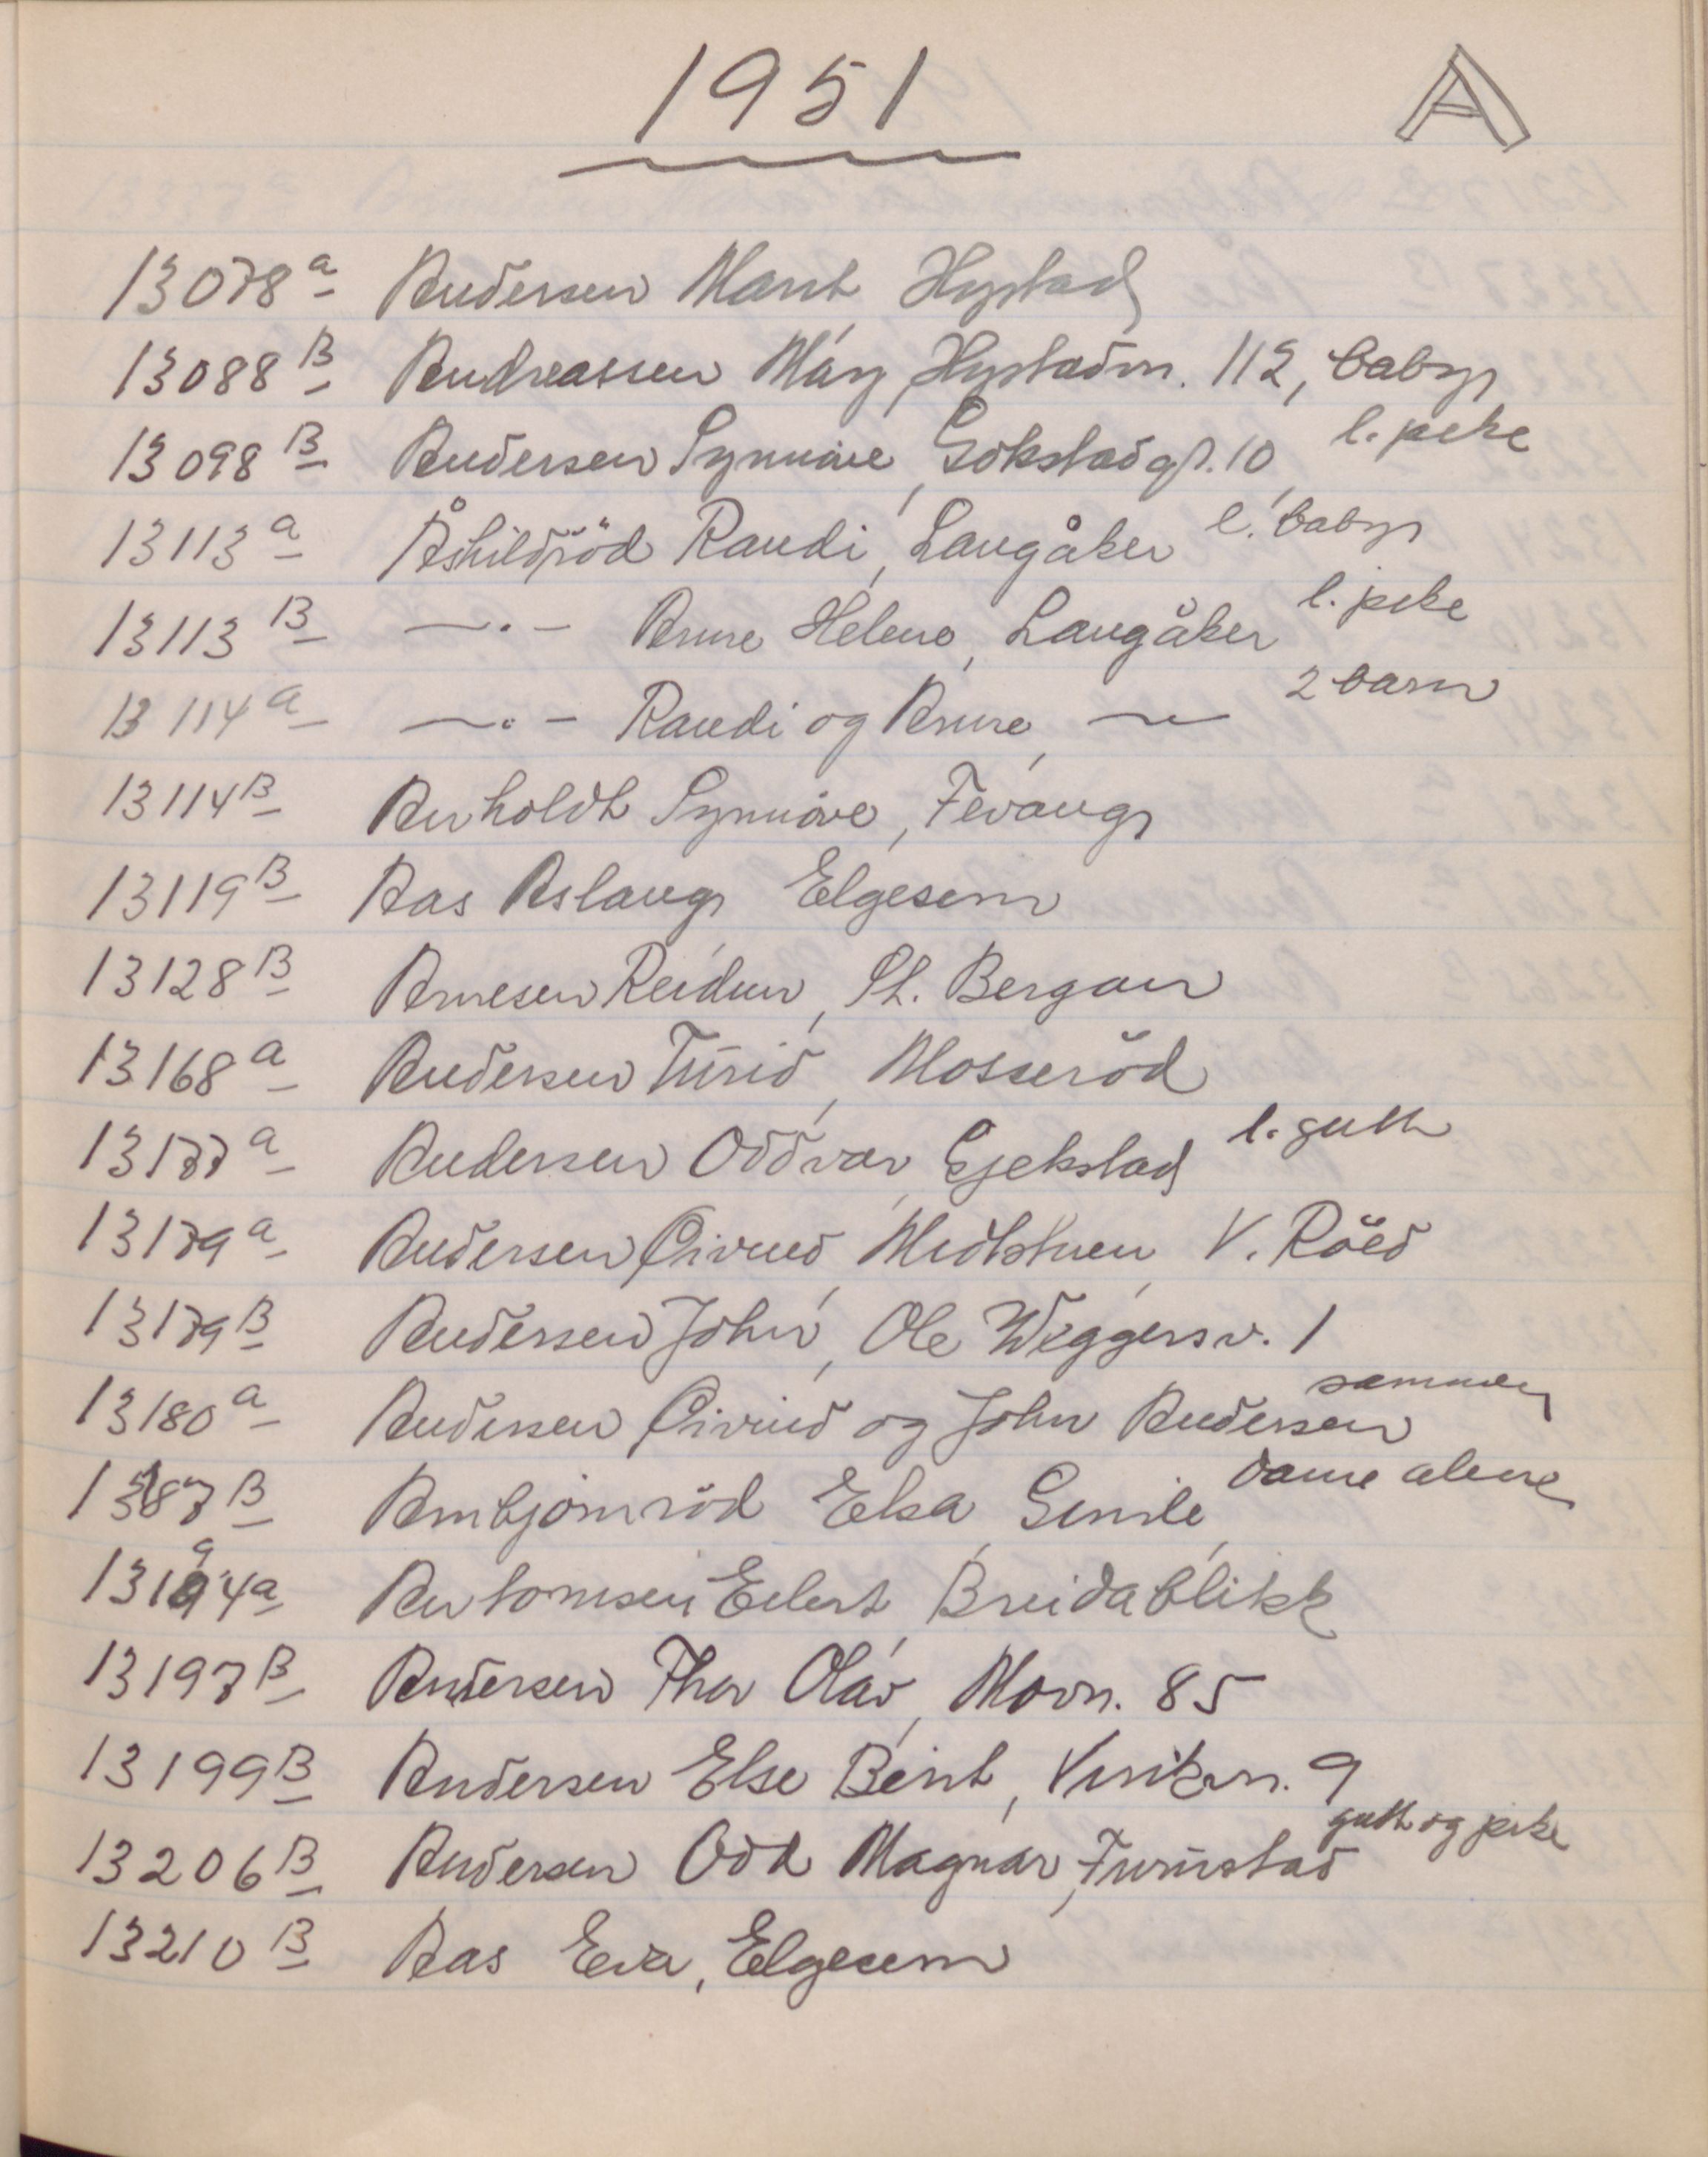 1951 A
13078 a Andersen Marit Hystad
13088 B Andreassen Mary, Hystadvn. 112, baby
13098 B Andersen Synnöve, Gokstadgt. 10, l. pike
13113 a Åshildröd Randi, Langåker l. baby
13113 B —.— Anne Helene, Langåker l. pike
13114 a —.— Randi og Anne, — 2 barn
13114 B Anholdt Synnöve, Fevang
13119 B Aas Aslaug Elgesem
13128 B Arnesen Reidun, St. Bergan
13168 a Andersen Turid, Mosseröd
13177 a Andersen Oddvar, Gjekstad l. gutt
13179 a Andersen Öivind, Midtstuen, V. Röed
13179 B Andersen John, Ole Weggersv. 1
13180 a Andersen Öivind og John Andersen sammen
13187 B Arnbjörnröd Elsa, Gimle, dame alene
13194 a Antonisen Eilert, Breidablikk
13197 B Andersen Thor Olav, Movn. 85
13199 B Andersen Else Berit, Vevikvn. 9
13206 B Andersen Odd Magnar, Furustad gutt og pike
13210 B Aas Eva, Elgesem